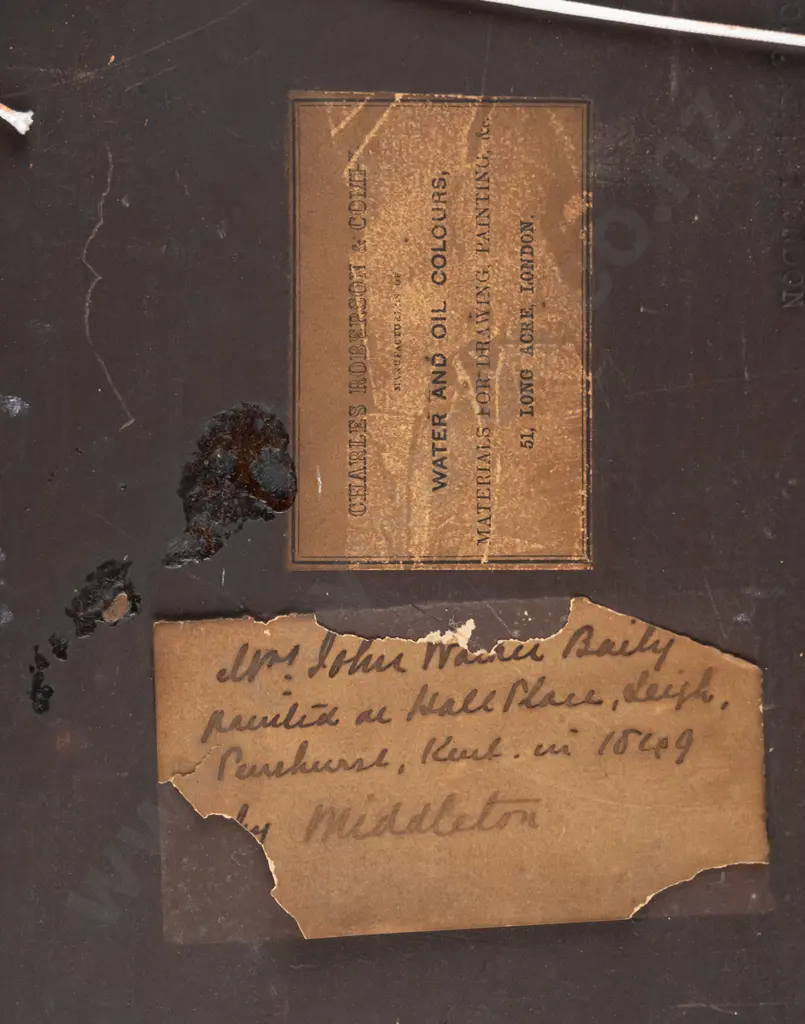 CHARLES ROBERSON & COMP
MANUFACTURERS OF
WATER AND OIL COLOURS,
MATERIALS FOR DRAWING, PAINTING, &c.
51, LONG ACRE, LONDON.
Mrs. John Warner Baily
painted at Hall Place, Leigh,
Penshurst, Kent. in 1849
by Middleton